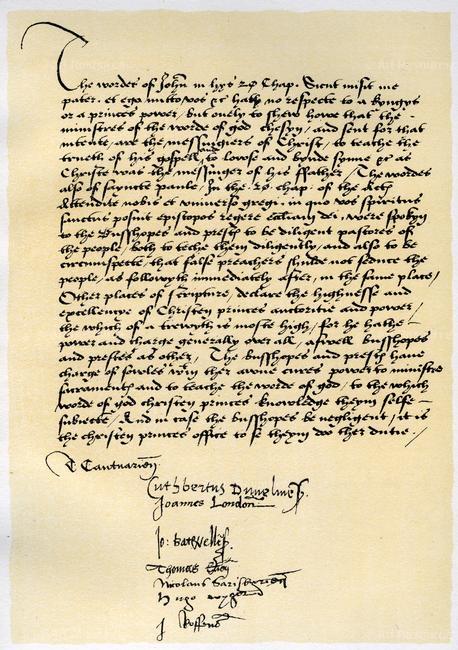 The wordes of John in hys 20 Chap. Sicut misit me
pater, et ego mitto vos &c hath no respecte to a kyngys
or a princes power, but onely to shew howe that the
ministres of the worde of god, chosyn, and sent for that
intente, are the messyngiers of Christ, to teache the
trueth of his gospell, and to loose and bynde synne &c as
Christe was the messinger of his ffather, The wordes
also of saynete paule, In the 20. chap. of the Acts
Attendite vobis et universo gregi, in quo vos spiritus
sanctus posuit episcopos regere ecclesiam dei, were spokyn
to the Busshopes and prests to be diligent pastores of
the people, both to teche them diligently, and also to be
circumspecte, that false preachers shulde not seduce the
people, as followyth immediately after, in the same place,
Other places of scripture, declare the highnesse and
excellencye of Christen princes auctoritie and power,
the which of a trewyth is moste high, for he hathe
power and charge generally over all, aswell busshopes
and prestes as other, The busshopes and prests have
charge of sowles within their awne cures, power to ministre
sacraments and to teache the worde of god, to the which
worde of god christen princes knowledge theym selfe
subiecte, And in case the busshopes be negligent, it is
the christen princes office to se theym doo ther dutie./
T Cantuarien
Cuthbertus Dunelmen
Joannes London
Jo: Bathwellen
Thomas Elien
Nicolaus Sarisburien
Hugo wygorn
J Roffens